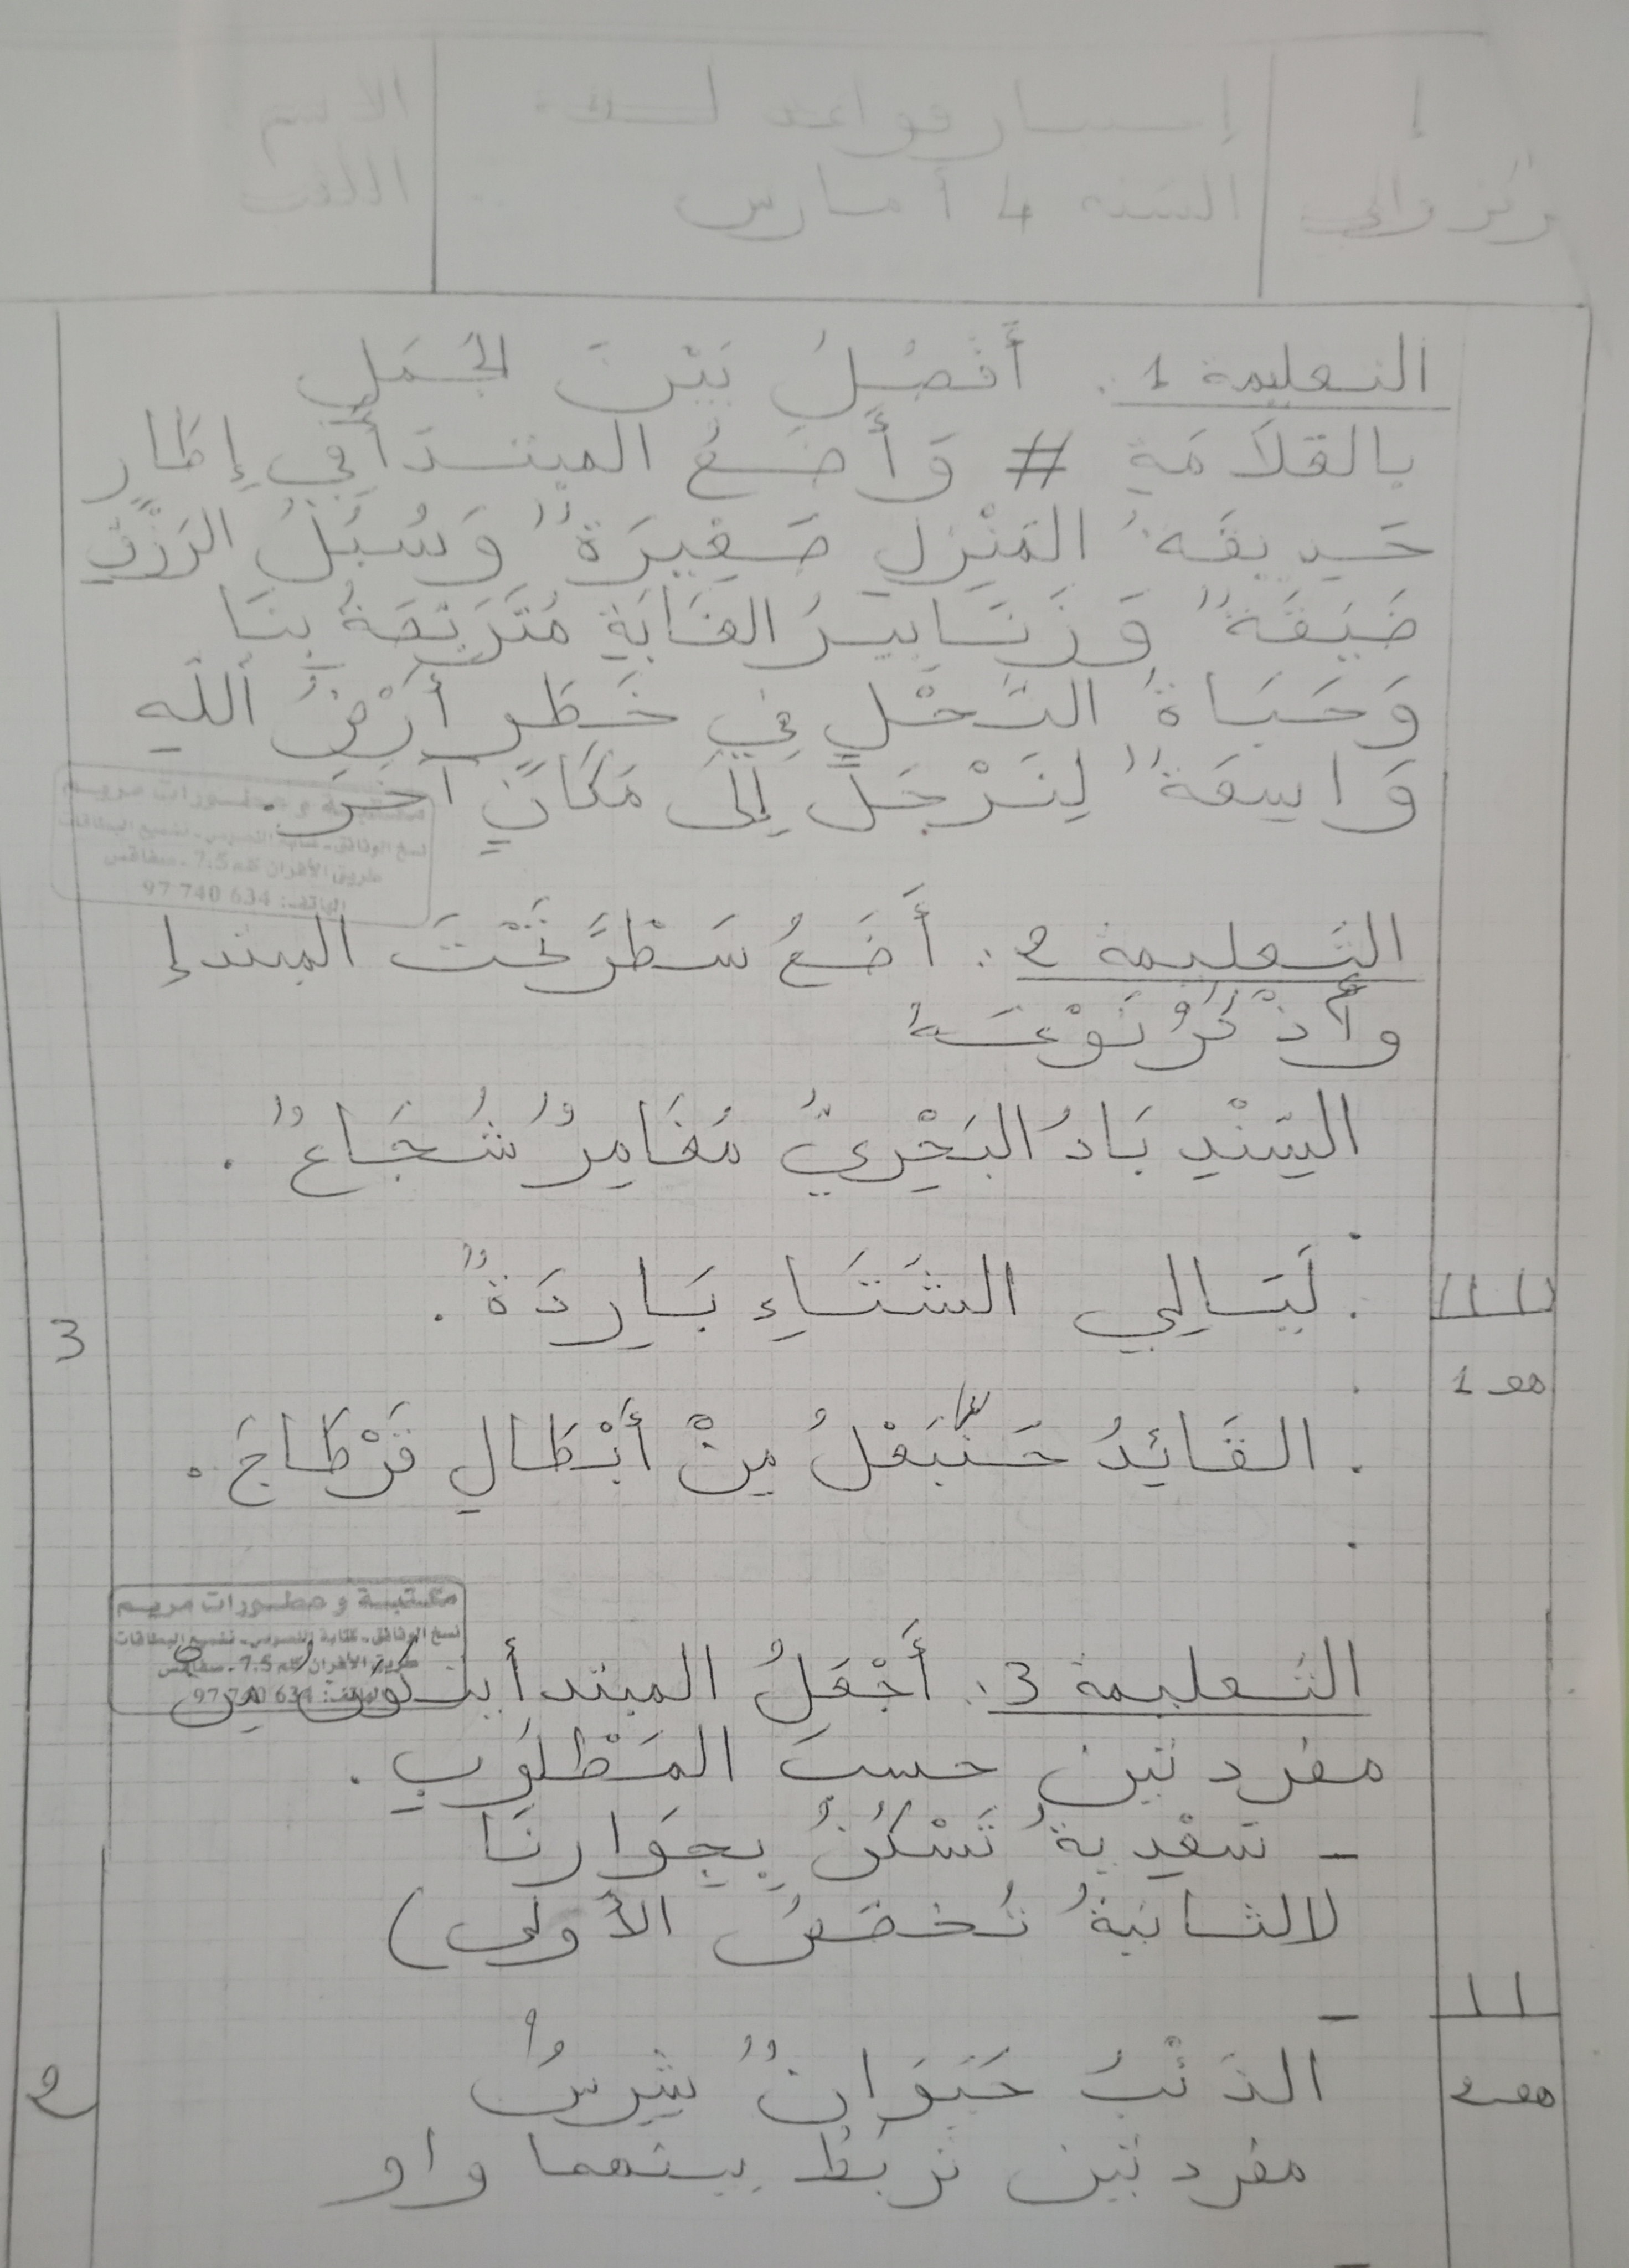 الاسم
اللقب
السنة 4 أ مارس
التعليمة 1. أَفْصِلُ بَيْنَ الجُمَلِ
بالعَلَامَةِ # وَأَضَعُ المبتدأ في إِطَارٍ
حَدِيقَةُ المَنْزِلِ صَغِيرَةٌ وَسُبُلُ الرِّزْقِ
ضَيِّقَةٌ وَزَنَابِيرُ الغَابَةِ مُتَرَبِّصَةٌ بِنَا
وَحَيَاةُ النَّحْلِ فِي خَطَرٍ أَرْضُ اللَّهِ
وَاسِعَةٌ لِنَرْحَلْ إِلَى مَكَانٍ آخَرَ.
مكتبة و مطورات مريم
نسخ الوثائق - كتابة النصوص - تفسيح البطاقات
طريق الأفران كلم 7.5 - صفاقس
الهاتف: 634 740 97
التعليمة 2: أَضَعُ سَطْرًا تَحْتَ المبتدإ
وأَذْكُرُ نَوْعَهُ
السِّنْدِبَادُ البَحْرِيُّ مُغَامِرٌ شُجَاعٌ.
. لَيَالِي الشِّتَاءِ بَارِدَةٌ.
3
مع 1
. القَائِدُ حَنَّبَعْلُ مِنْ أَبْطَالِ قَرْطَاجَ.
مكتبة و مطورات مريم
نسخ الوثائق - كتابة النصوص - تفسيح البطاقات
طريق الأفران كلم 7.5 - صفاقس
الهاتف: 634 740 97
التعليمة 3: أَجْعَلُ المبتدأ يتكَوَّنُ مِنْ
مفردتين حسبَ المَطْلُوبِ.
- سَعْدِيةُ تَسْكُنُ بِجِوَارِنَا
(الثانيةُ تُخَصِّصُ الأُولى)
الذِّئْبُ حَيَوَانٌ شَرِسٌ
2
مع 2
مفردتين تَرْبِطُ بينهما واو